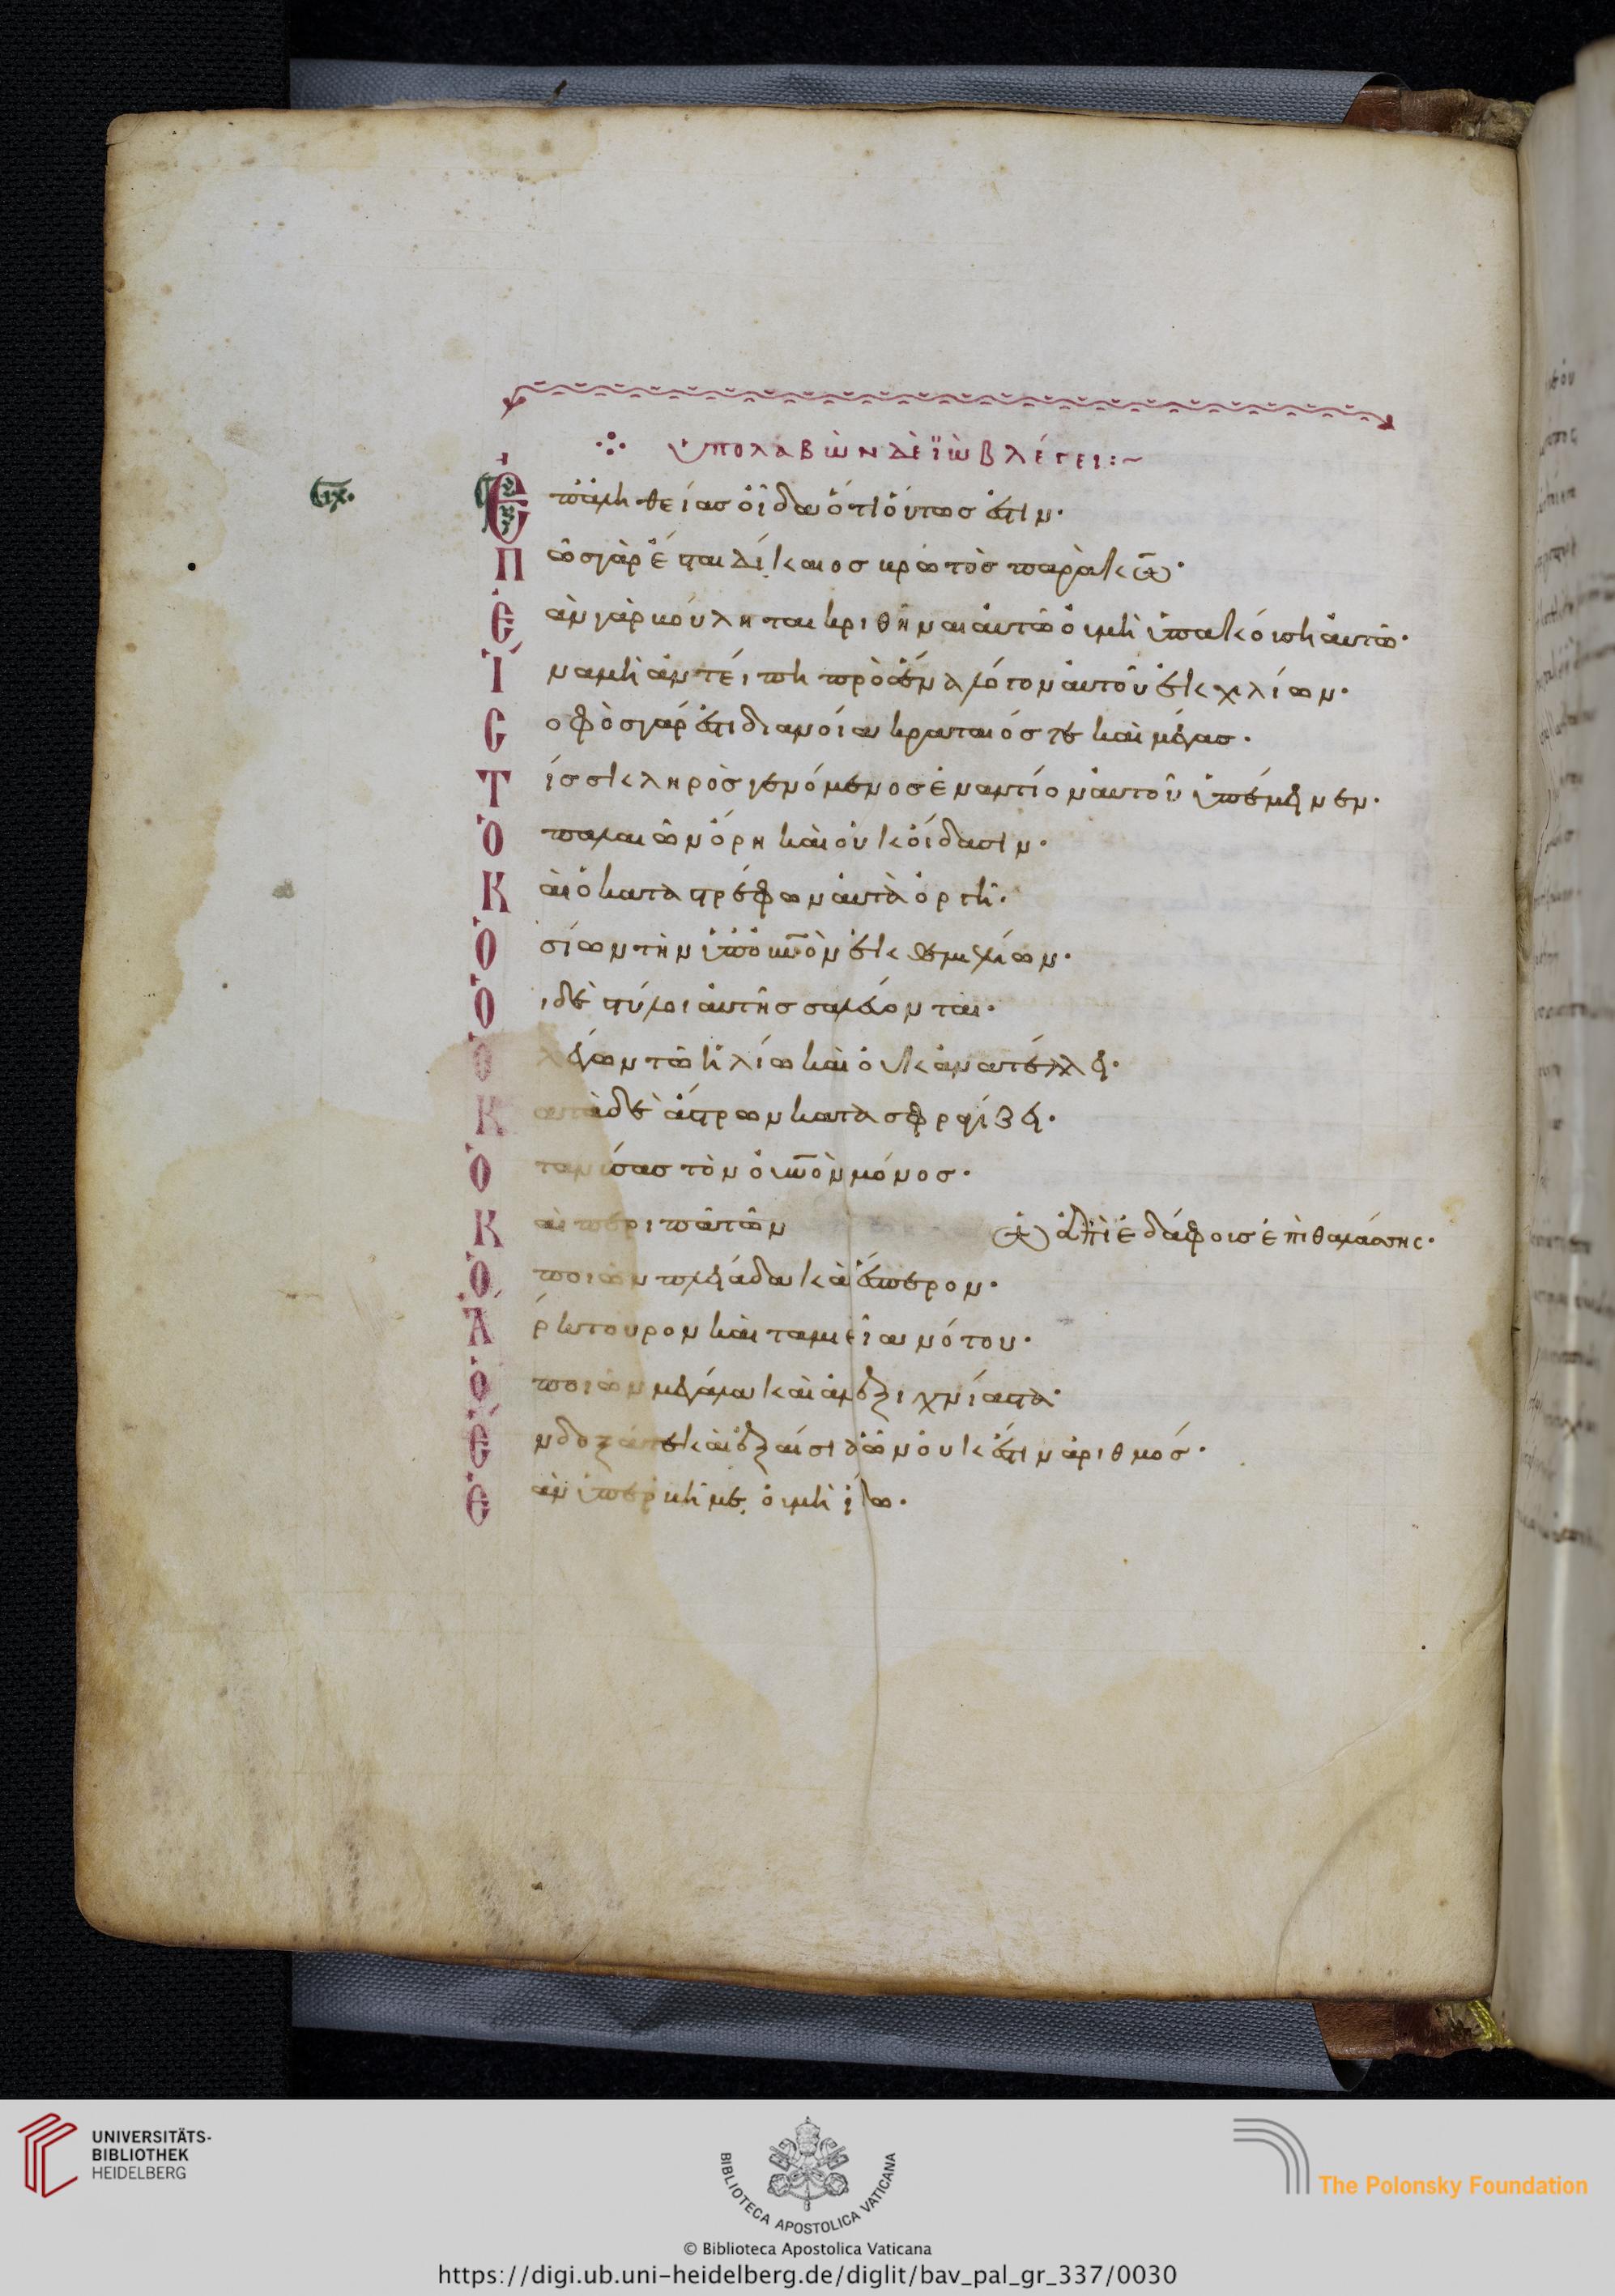 ὑπολαβὼν δὲ ἰὼβ λέγει:~
Ἐπ' ἀληθείας οἶδα ὅτι οὕτως ἐστιν·
Πῶς γὰρ ἔσται δίκαιος βροτὸς παρὰ κω·
Ἐὰν γὰρ βούληται κριθῆναι αὐτῶ οὐ μὴ ὑπακούση αὐτῶ·
Ἵνα μὴ ἀντείπη πρὸς ἕνα λόγον αὐτοῦ ἐκ χιλίων·
Σοφὸς γάρ ἐστι διανοία κραταιός τε καὶ μέγας·
Τίς σκληρὸς γενόμενος ἐναντίον αὐτοῦ ὑπέμεινεν·
Ὁ παλαιῶν ὄρη καὶ οὐκ οἴδασιν·
Καὶ ὁ καταστρέφων αὐτὰ ὀργῆ·
Ὁ σείων τὴν ὑπ' οὐνὸν ἐκ θεμελίων·
Οἱ δὲ στύλοι αὐτῆς σαλεύονται·
Ὁ λέγων τῶ ἡλίω καὶ οὐκ ἀνατέλλει·
Κατὰ δὲ ἄστρων κατασφραγίζει·
Ὁ τανύσας τὸν οὐνὸν μόνος·
Καὶ περιπατῶν ὡς ἐπὶ ἐδάφους ἐπὶ θαλάσσης·
Ὁ ποιῶν πλειάδα καὶ ἕσπερον·
Ἀρκτοῦρον καὶ ταμιεῖα νότου·
Ὁ ποιῶν μεγάλα καὶ ἀνεξιχνίαστα·
Ἔνδοξά τε καὶ ἐξαίσια ὧν οὐκ ἔστιν ἀριθμός·
Ἐὰν ὑπερβῆ με, οὐ μὴ ἴδω·
UNIVERSITÄTS-
BIBLIOTHEK
HEIDELBERG
BIBLIOTECA APOSTOLICA VATICANA
The Polonsky Foundation
© Biblioteca Apostolica Vaticana
https://digi.ub.uni-heidelberg.de/diglit/bav_pal_gr_337/0030